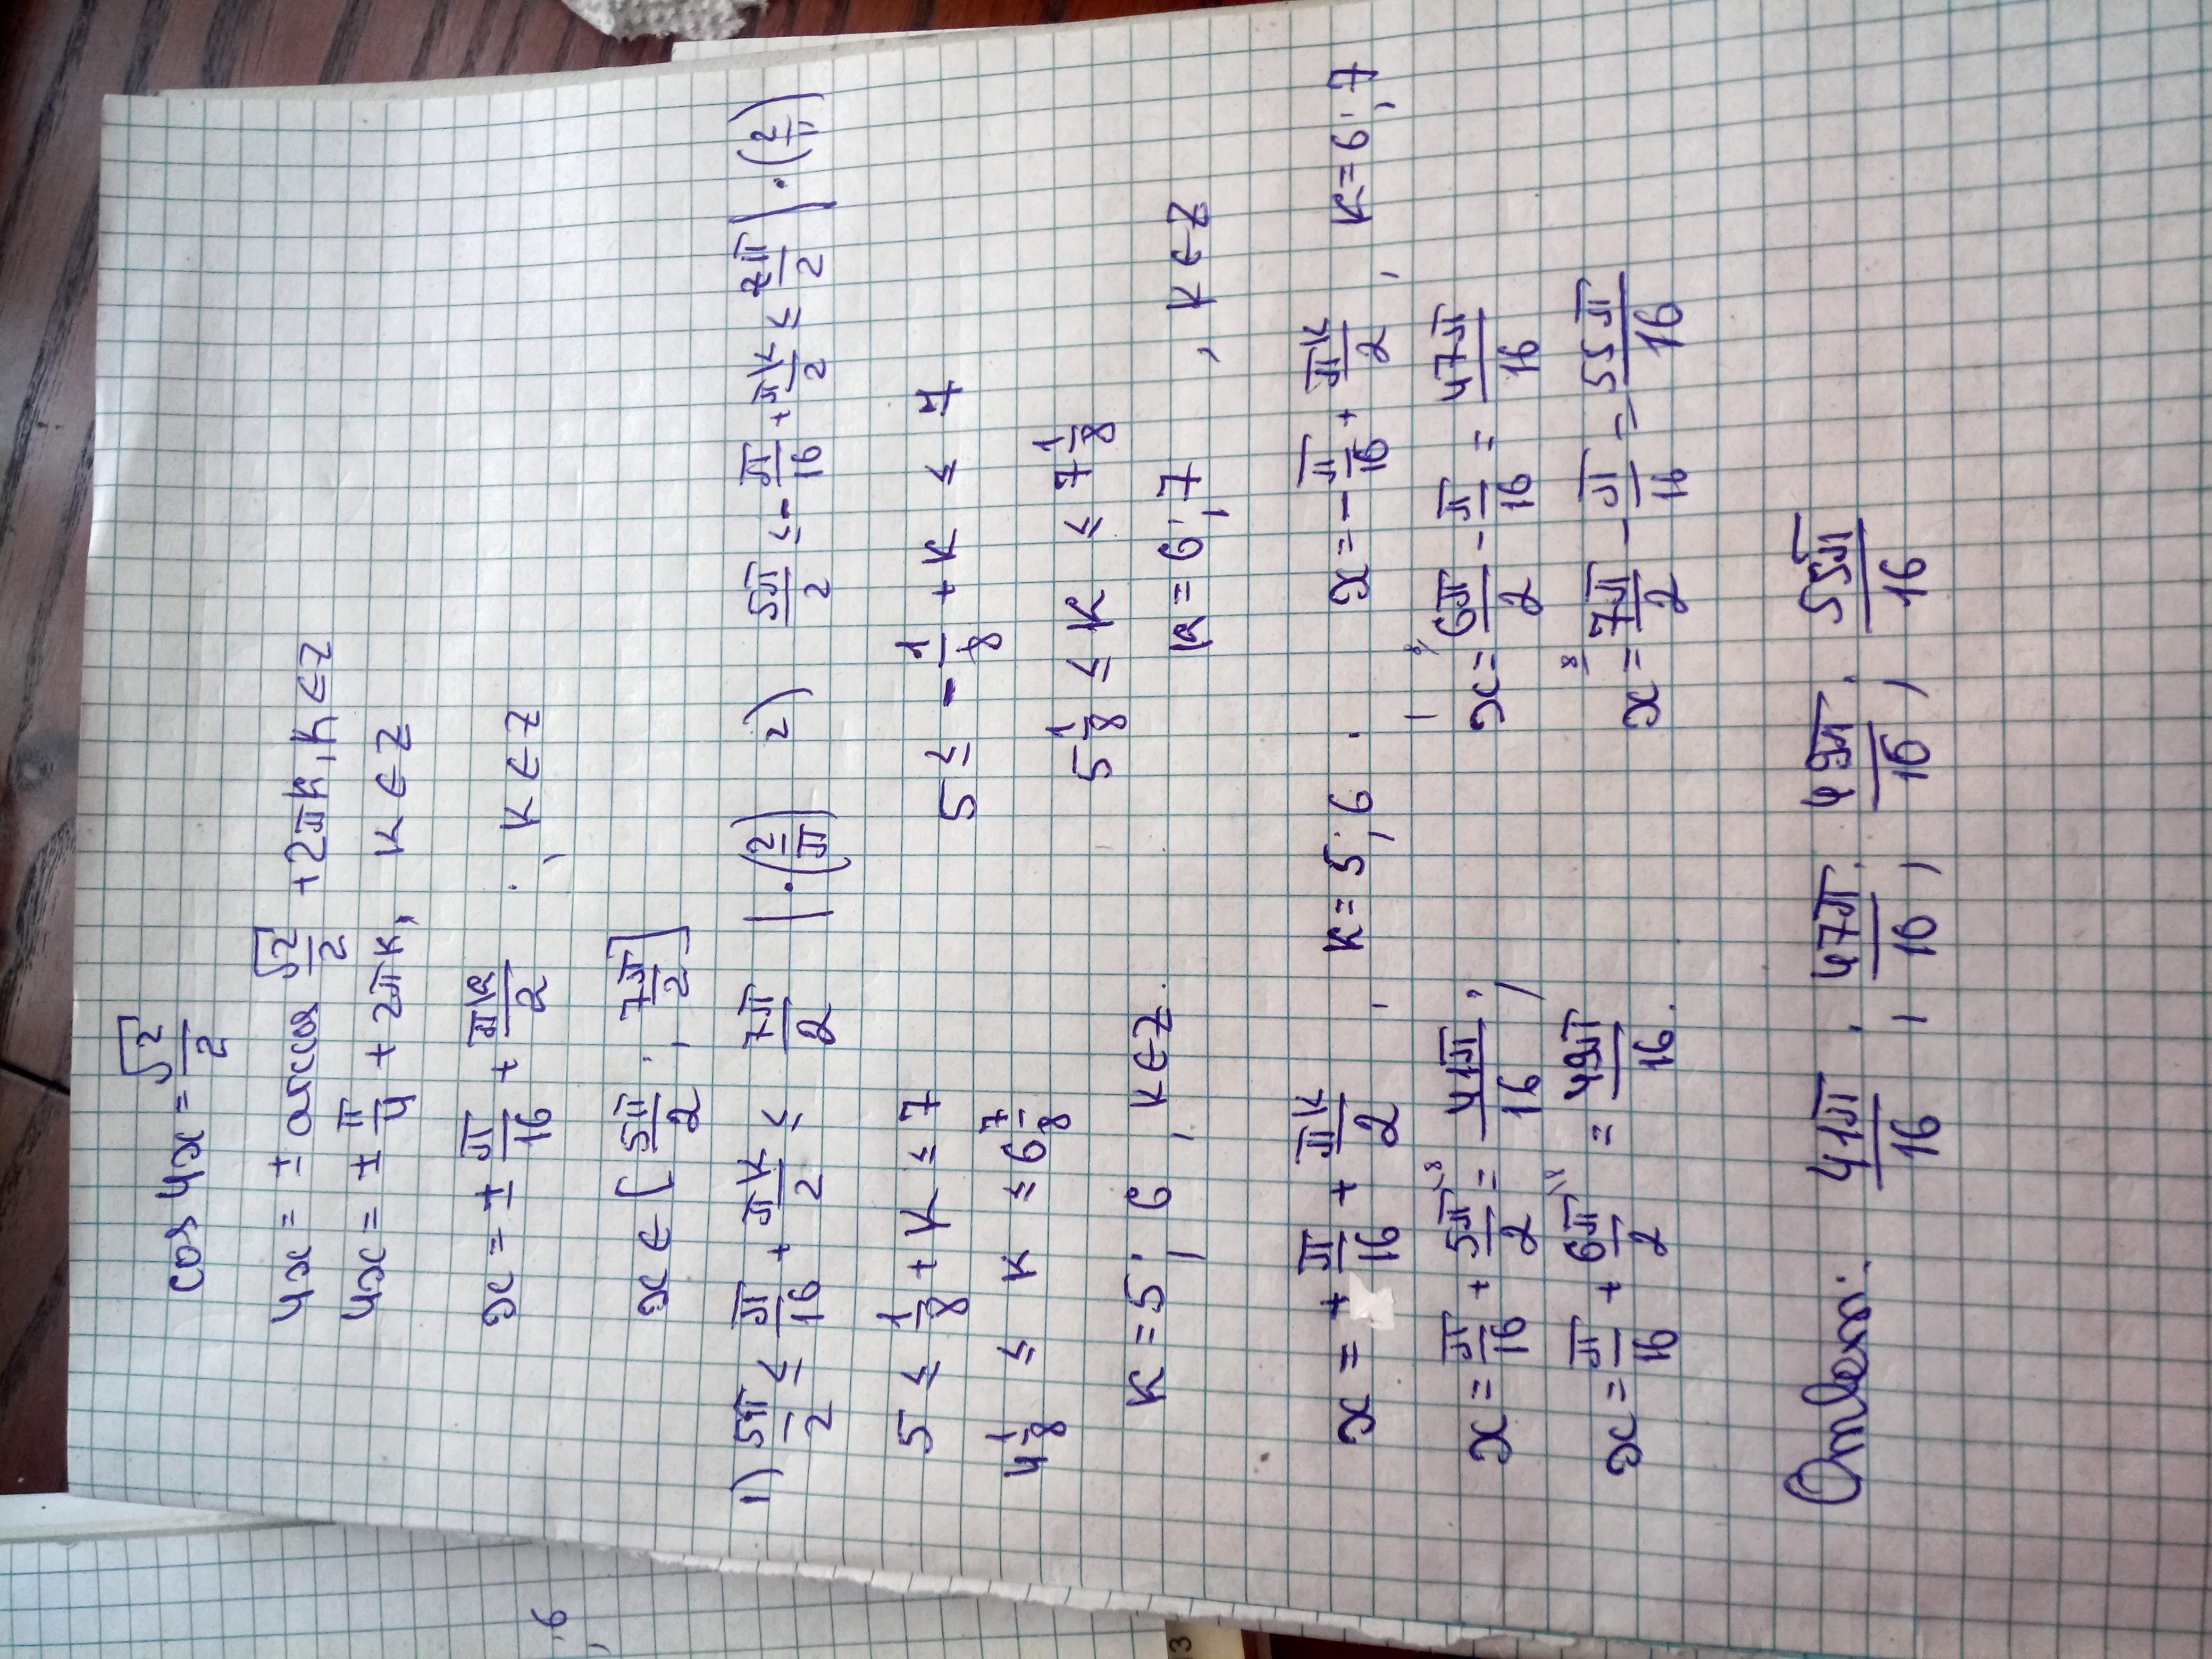 cos 4x = √2/2
4x = ± arccos √2/2 + 2πk, k ∈ Z
4x = ± π/4 + 2πk, k ∈ Z
x = ± π/16 + πk/2 ; k ∈ Z
x ∈ [5π/2 ; 7π/2]
1) 5π/2 ≤ π/16 + πk/2 ≤ 7π/2 | · (2/π)
5 ≤ 1/8 + k ≤ 7
4 1/8 ≤ k ≤ 6 7/8
k = 5 ; 6 , k ∈ Z.
2) 5π/2 ≤ - π/16 + πk/2 ≤ 7π/2 | · (2/π)
5 ≤ - 1/8 + k ≤ 7
5 1/8 ≤ k ≤ 7 1/8
k = 6 ; 7 , k ∈ Z
x = + π/16 + πk/2 , k = 5 ; 6 .
x = π/16 + 5π/2 = 41π/16 ;
x = π/16 + 6π/2 = 49π/16 .
x = - π/16 + πk/2 , k = 6 ; 7
x = 6π/2 - π/16 = 47π/16
x = 7π/2 - π/16 = 55π/16
Ответ: 41π/16 ; 47π/16 ; 49π/16 ; 55π/16
; 6
3